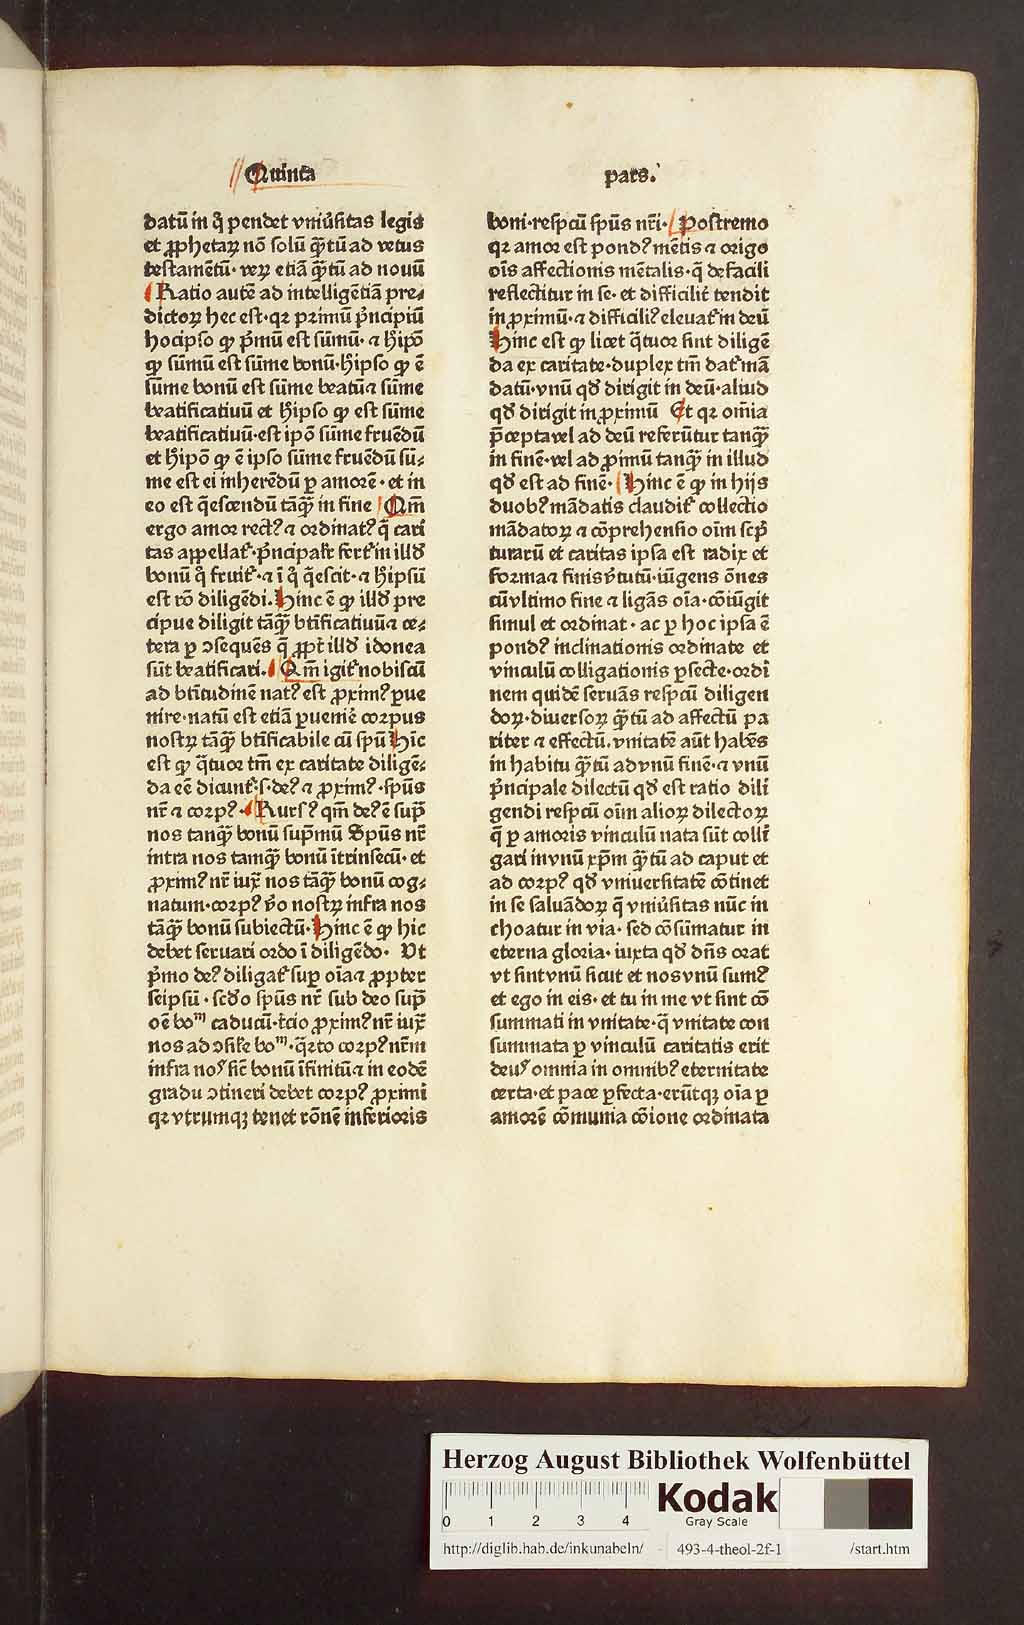 Quinta
pars.
datū in q̄ pendet vniuͥsitas legis
et ꝓphetaꝝ nō solū qͣtū ad vetus
testamētū· veꝝ etiā qͣtū ad nouū
Ratio autē ad intelligētiā pre⸗
dictoꝝ hec est· qꝛ primū pͥncipiū
hocipso ꝙ pͥmū est sūmū· ⁊ hͥipō
ꝙ sūmū est sūme bonū· hͥipso ꝙ ē
sūme bonū est sūme beatū⁊ sūme
beatificatiuū et hͥipso ꝙ est sūme
beatificatiuū· est ipō sūme fruēdū
et hͥipō ꝙ ē ipso sūme fruēdū sū⸗
me est ei inherēdū ꝑ amorē· et in
eo est q̄escendū tāqͣ in fine Qm̄
ergo amor rectꝰ ⁊ ordinatꝰ q̄ cari
tas appellatͬ· pͥncipalr̄ fertͬ in illd̓
bonū qͦ fruitͬ· ⁊ ī qͦ q̄escit· ⁊ hͥipsū
est rō diligēdi. Hinc ē ꝙ illd̓ pre
cipue diligit tāqͣ btīficatiuū⁊ ce⸗
tera ꝑ ↄsequēs q̄ ꝓpt̓ illd̓ idonea
sūt beatificari. Qm̄ igitͬ nobiscū
ad btītudinē natꝰ est ꝓximꝰ ꝑue
nire· natū est etiā ꝑuenir̄ corpus
nostꝝ tāqͣ btīficabile cū spū Hīc
est ꝙ q̄tuor tm̄ ex caritate diligē⸗
da eē dicuntͬ· s· deꝰ ⁊ ꝓximꝰ· spūs
nr̄ ⁊ corpꝰ· Rursꝰ qm̄ deꝰ ē supͣ
nos tanqͣ bonū supͥmū Spūs nr̄
intra nos tamqͣ bonū ītrinsecū· et
ꝓximꝰ nr̄ iuxͣ nos tāqͣ bonū cog⸗
natum· corpꝰ v̓o nostꝝ infra nos
tāqͣ bonū subiectū· Hinc ē ꝙ hic
debet seruari ordo ī diligēdo· Vt
pͥmo deꝰ diligatͬ suꝑ oīa⁊ ꝓpter
seipsū· scd̓o spūs nr̄ sub deo supͣ
oē boᵐ caducū· t̓cio ꝓximꝰ nr̄ iuxͣ
nos ad ↄsīle boᵐ· q̄rto corpꝰ nrm̄
infra noˢ sic̄ bonū īfinitū⁊ in eodē
gradu ↄtineri debet corpꝰ ꝓximi
qꝛ vtrumqꝫ tenet rōnē inferioris
boni· respcū spūs nri· Postremo
qꝛ amor est pondꝰ mētis ⁊ origo
oīs affectionis mētalis· q̄ de facili
reflectitur in se· et difficilit̓ tendit
in ꝓximū· ⁊ difficiliꝰ eleuatͬ in deū
Hinc est ꝙ licet q̄tuor sint diligē
da ex caritate· duplex tm̄ datͬ mā
datū· vnū qd̓ dirigit in deū· aliud
qd̓ dirigit in ꝓximū Et qꝛ om̄ia
p̄cepta vel ad deū referūtur tanqͣ
in finē· vel ad ꝓximū tanqͣ in illud
qd̓ est ad finē· Hinc ē ꝙ in hijs
duobꝰ mādatis clauditͬ collectio
mādatoꝝ ⁊ cōprehensio oīm scpͥ
turarū et caritas ipsa est radix et
forma⁊ finis v̓tutū· iūgens ōnes
cū vltimo fine ⁊ ligās oīa· cōiūgit
simul et ordinat· ac ꝑ hoc ipsa ē
pondꝰ inclinationis ordinate et
vinculū colligationis ꝑfecte· ordī
nem quidē seruās respcū diligen
doꝝ· diuersoꝝ qͣtū ad affectū pa
riter ⁊ effectū. vnitatē aūt habēs
in habitu qͣtū ad vnū finē· ⁊ vnū
pͥncipale dilectū qd̓ est ratio dili
gendi respcū oīm alioꝝ dilectoꝝ
q̄ ꝑ amoris vinculū nata sūt colli
gari in vnū xpm̄ qͣtū ad caput et
ad corpꝰ qd̓ vniuersitatē cōtinet
in se saluādoꝝ q̄ vniuͥsitas nūc in
choatur in via· sed cōsūmatur in
eterna gloria· iuxta qd̓ dn̄s orat
vt sint vnū sicut et nos vnū sumꝰ
et ego in eis· et tu in me vt sint cō
summati in vnitate· q̄ vnitate con
summata ꝑ vinculū caritatis erit
deuˢ omnia in omnibꝰ eternitate
certa· et pace ꝑfecta· erūtqꝫ oīa ꝑ
amorē cōmunia cōione ordinata
Herzog August Bibliothek Wolfenbüttel
0 1 2 3 4
Kodak
Gray Scale
http://diglib.hab.de/inkunabeln/ - 493-4-theol-2f-1 /start.htm